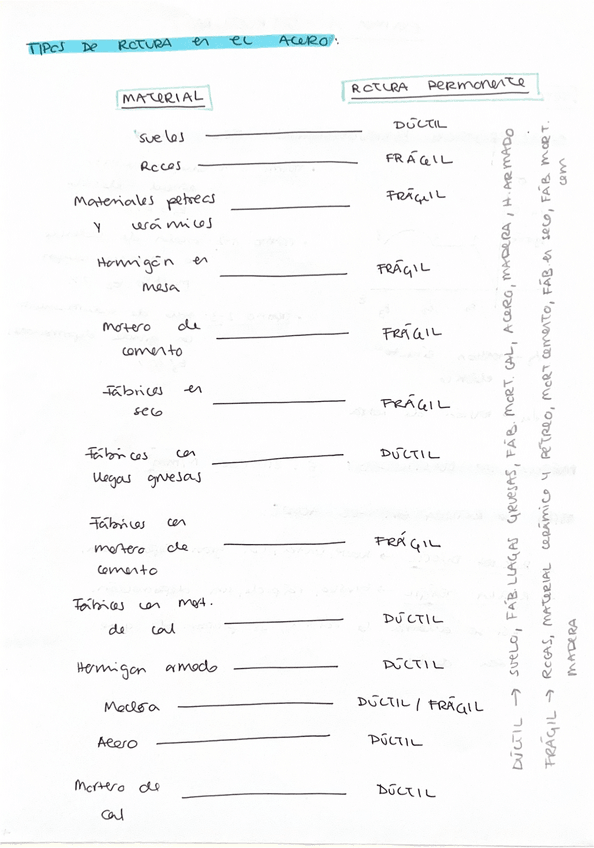 TIPOS DE ROTURA en el ACERO:
MATERIAL ROTURA PERMANENTE
Suelos DÚCTIL
Rocas FRÁGIL
Materiales petreos FRÁGIL
y cerámicos
Hormigón en FRÁGIL
masa
Mortero de FRÁGIL
cemento
Fábricas en FRÁGIL
seco
Fábricas con DÚCTIL
llegas gruesas
Fábricas con FRÁGIL
mortero de
cemento
Fábricas con mort. DÚCTIL
de cal
Hormigon armado DÚCTIL
Madera DÚCTIL / FRÁGIL
Acero DÚCTIL
Mortero de DÚCTIL
cal
DÚCTIL → SUELO, FÁB. LLAGAS GRUESAS, FÁB. MORT. CAL, ACERO, MADERA, H. ARMADO
FRÁGIL → ROCAS, MATERIAL CERÁMICO Y PÉTREO, MORT CEMENTO, FÁB en SECO, FÁB MORT.
cem
MADERA